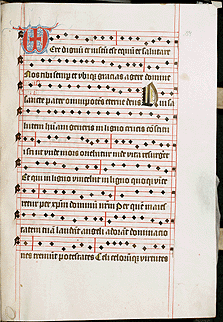 Vere dignu et iustu est equu et salutare
Nos tibi semp et ubiq gracias agere domine
sancte pater omnipotes eterne deus Qui sa
lutem humani generis in ligno crucis costitu
isti ut unde mors oriebatur inde vita resurgeret
Et qui in ligno vincebat in ligno quoq vince
retur per xpm dominu nrm Per que maies
tatem tua laudant angeli adorat dominatio
nes tremut potestates Celi celorumq virtutes